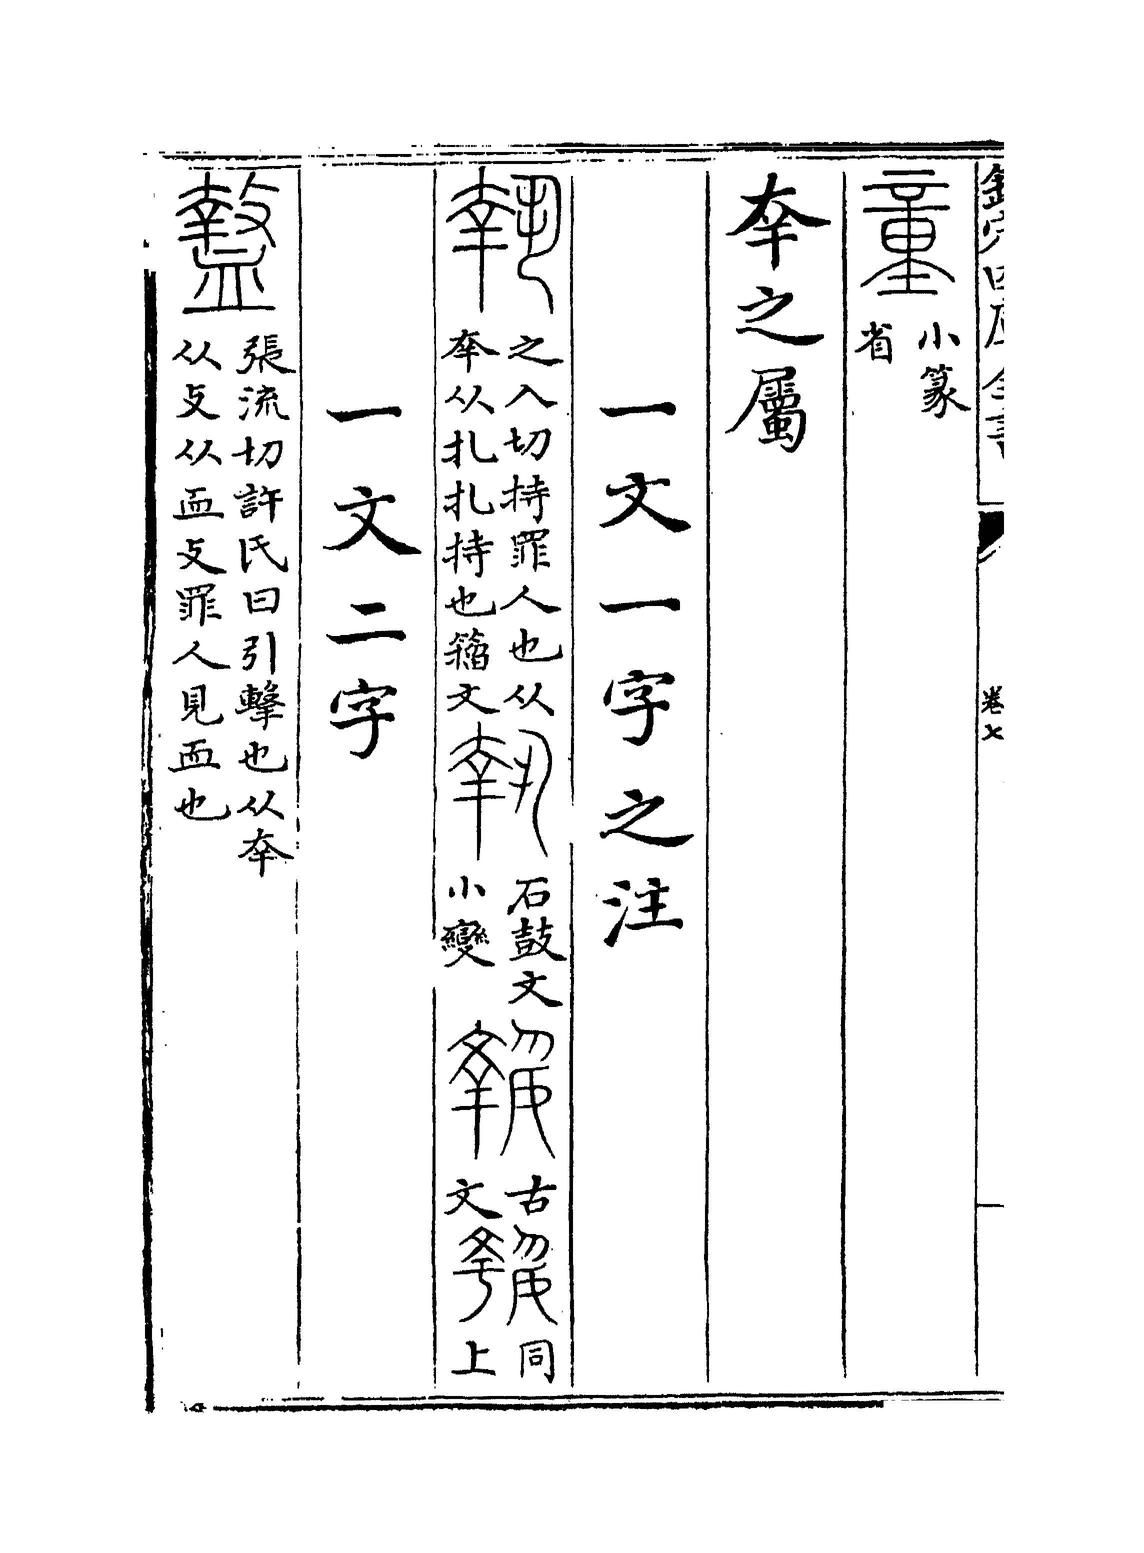 欽定四庫全書
卷七
童
小篆
省
㚔之屬
一文一字之注
執
之入切持罪人也从
㚔从扎扎持也籀文
執
石鼓文
小變
古
文
同
上
一文二字
盩
張流切許氏曰引擊也从㚔
从攴从血攴罪人見血也